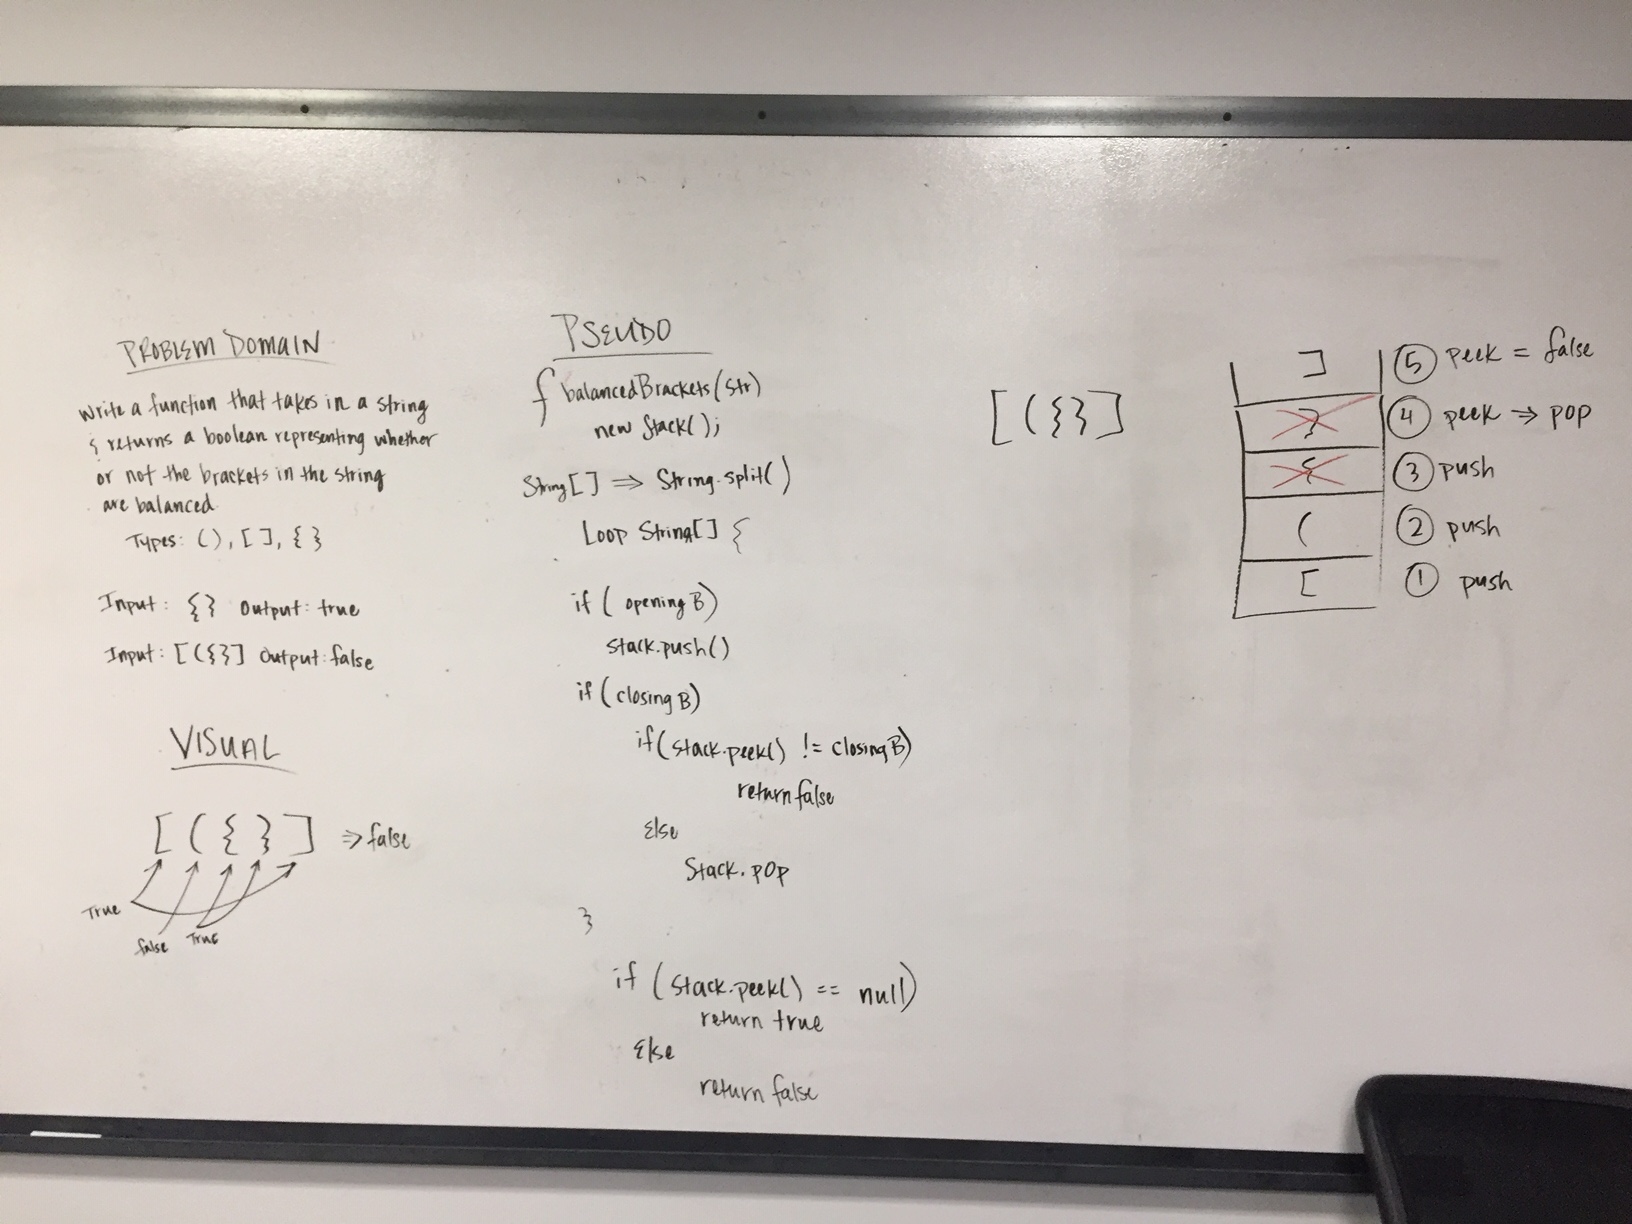 PROBLEM DOMAIN
write a function that takes in a string
& returns a boolean representing whether
or not the brackets in the string
are balanced.
Types: (), [ ], { }
Input: {} Output: true
Input: [({}] Output: false
VISUAL
[ ( { } ] => false
True
false True
PSEUDO
f balancedBrackets(str)
new Stack();
String[] => String.split()
Loop String[] {
if ( opening B)
stack.push()
if ( closing B)
if(stack.peek() != closing B)
return false
Else
Stack.pop
}
if (stack.peek() == null)
return true
Else
return false
[({}]
] ⑤ peek = false
} ④ peek => pop
{ ③ push
( ② push
[ ① push